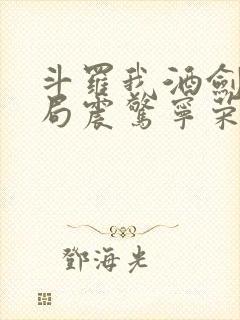 斗羅我酒劍
局震驚寧荣
鄧海光